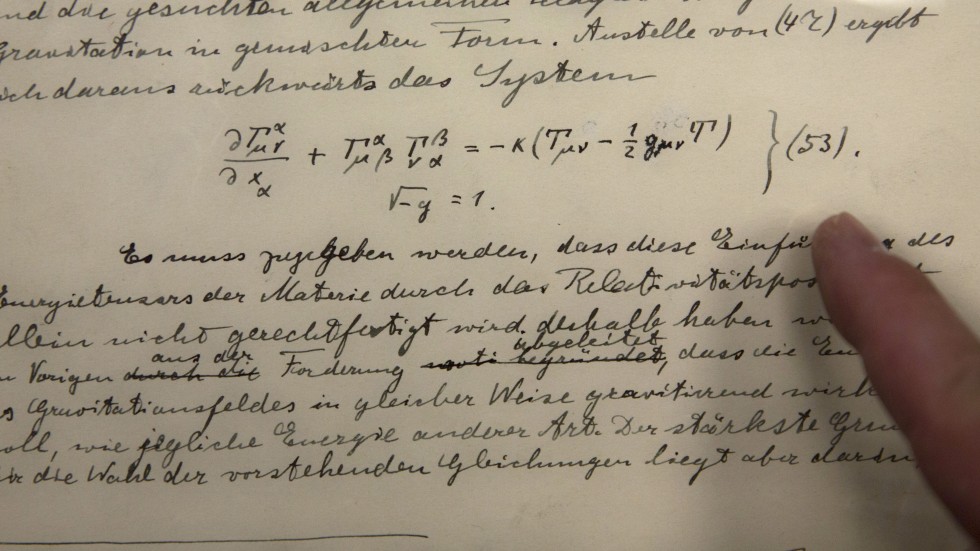 und die gesuchten allgemeinen
Gravitation in gemischten Form. Anstelle von (47) ergibt
sich daraus rückwärts das System
∂Γ_{μν}^α / ∂x_α + Γ_{μβ}^α Γ_{να}^β = −κ(T_{μν} − 1/2 g_{μν}T) } (53).
√−g = 1.
Es muss zugegeben werden, dass diese Einfü des
Energietensors der Materie durch das Relativitätspos
allein nicht gerechtfertigt wird. deshalb haben
abgeleitet
aus der
Vorigen durch die Forderung begründet, dass die En
Gravitationsfeldes in gleicher Weise gravitierend wirk
soll, wie jegliche Energie anderer Art. Der stärkste Gru
für die Wahl der vorstehenden Gleichungen liegt aber darin,